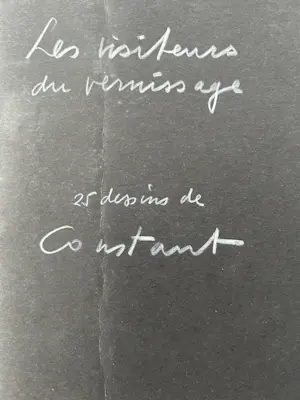 Les visiteurs
du vernissage
25 dessins de
Constant